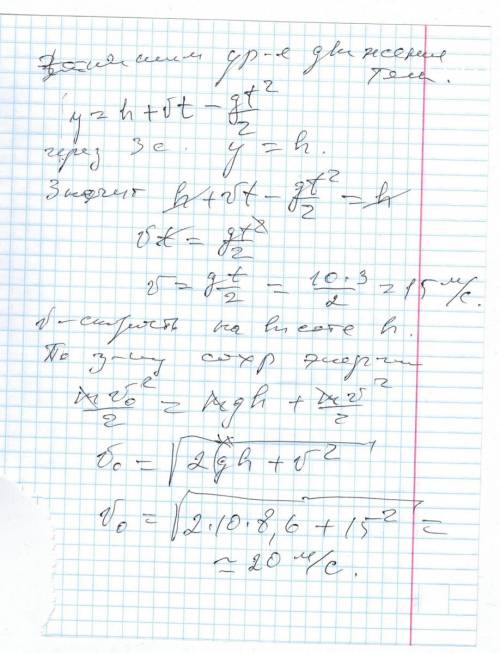 Запишем ур-я движения
тела.
y = h + vt - gt²/2
через 3 с. y = h.
Значит h + vt - gt²/2 = h
vt = gt²/2
v = gt/2 = 10·3/2 = 15 м/с.
v - скорость на высоте h.
По з-ну сохр энергии
mv₀²/2 = mgh + mv²/2
v₀ = √(2gh + v²)
v₀ = √(2·10·8,6 + 15²) =
≃ 20 м/с.